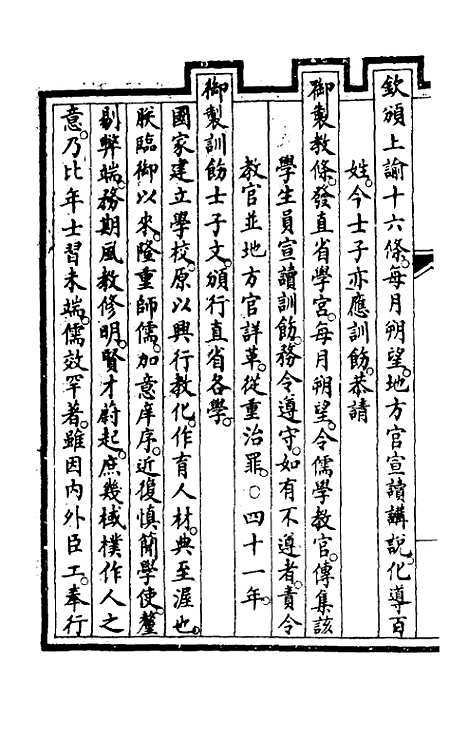 欽頒上諭十六條。每月朔望。地方官宣讀講說。化導百
姓。今士子亦應訓飭。恭請
御製教條。發直省學宮。每月朔望。令儒學教官。傳集該
學生員宣讀訓飭。務令遵守。如有不遵者。責令
教官並地方官詳革。從重治罪。○四十一年。
御製訓飭士子文。頒行直省各學。
國家建立學校。原以興行教化。作育人材。典至渥也。
朕臨御以來。隆重師儒。加意庠序。近復慎簡學使。釐
剔弊端。務期風教修明。賢才蔚起。庶幾棫樸作人之
意。乃比年士習未端。儒效罕著。雖因內外臣工。奉行